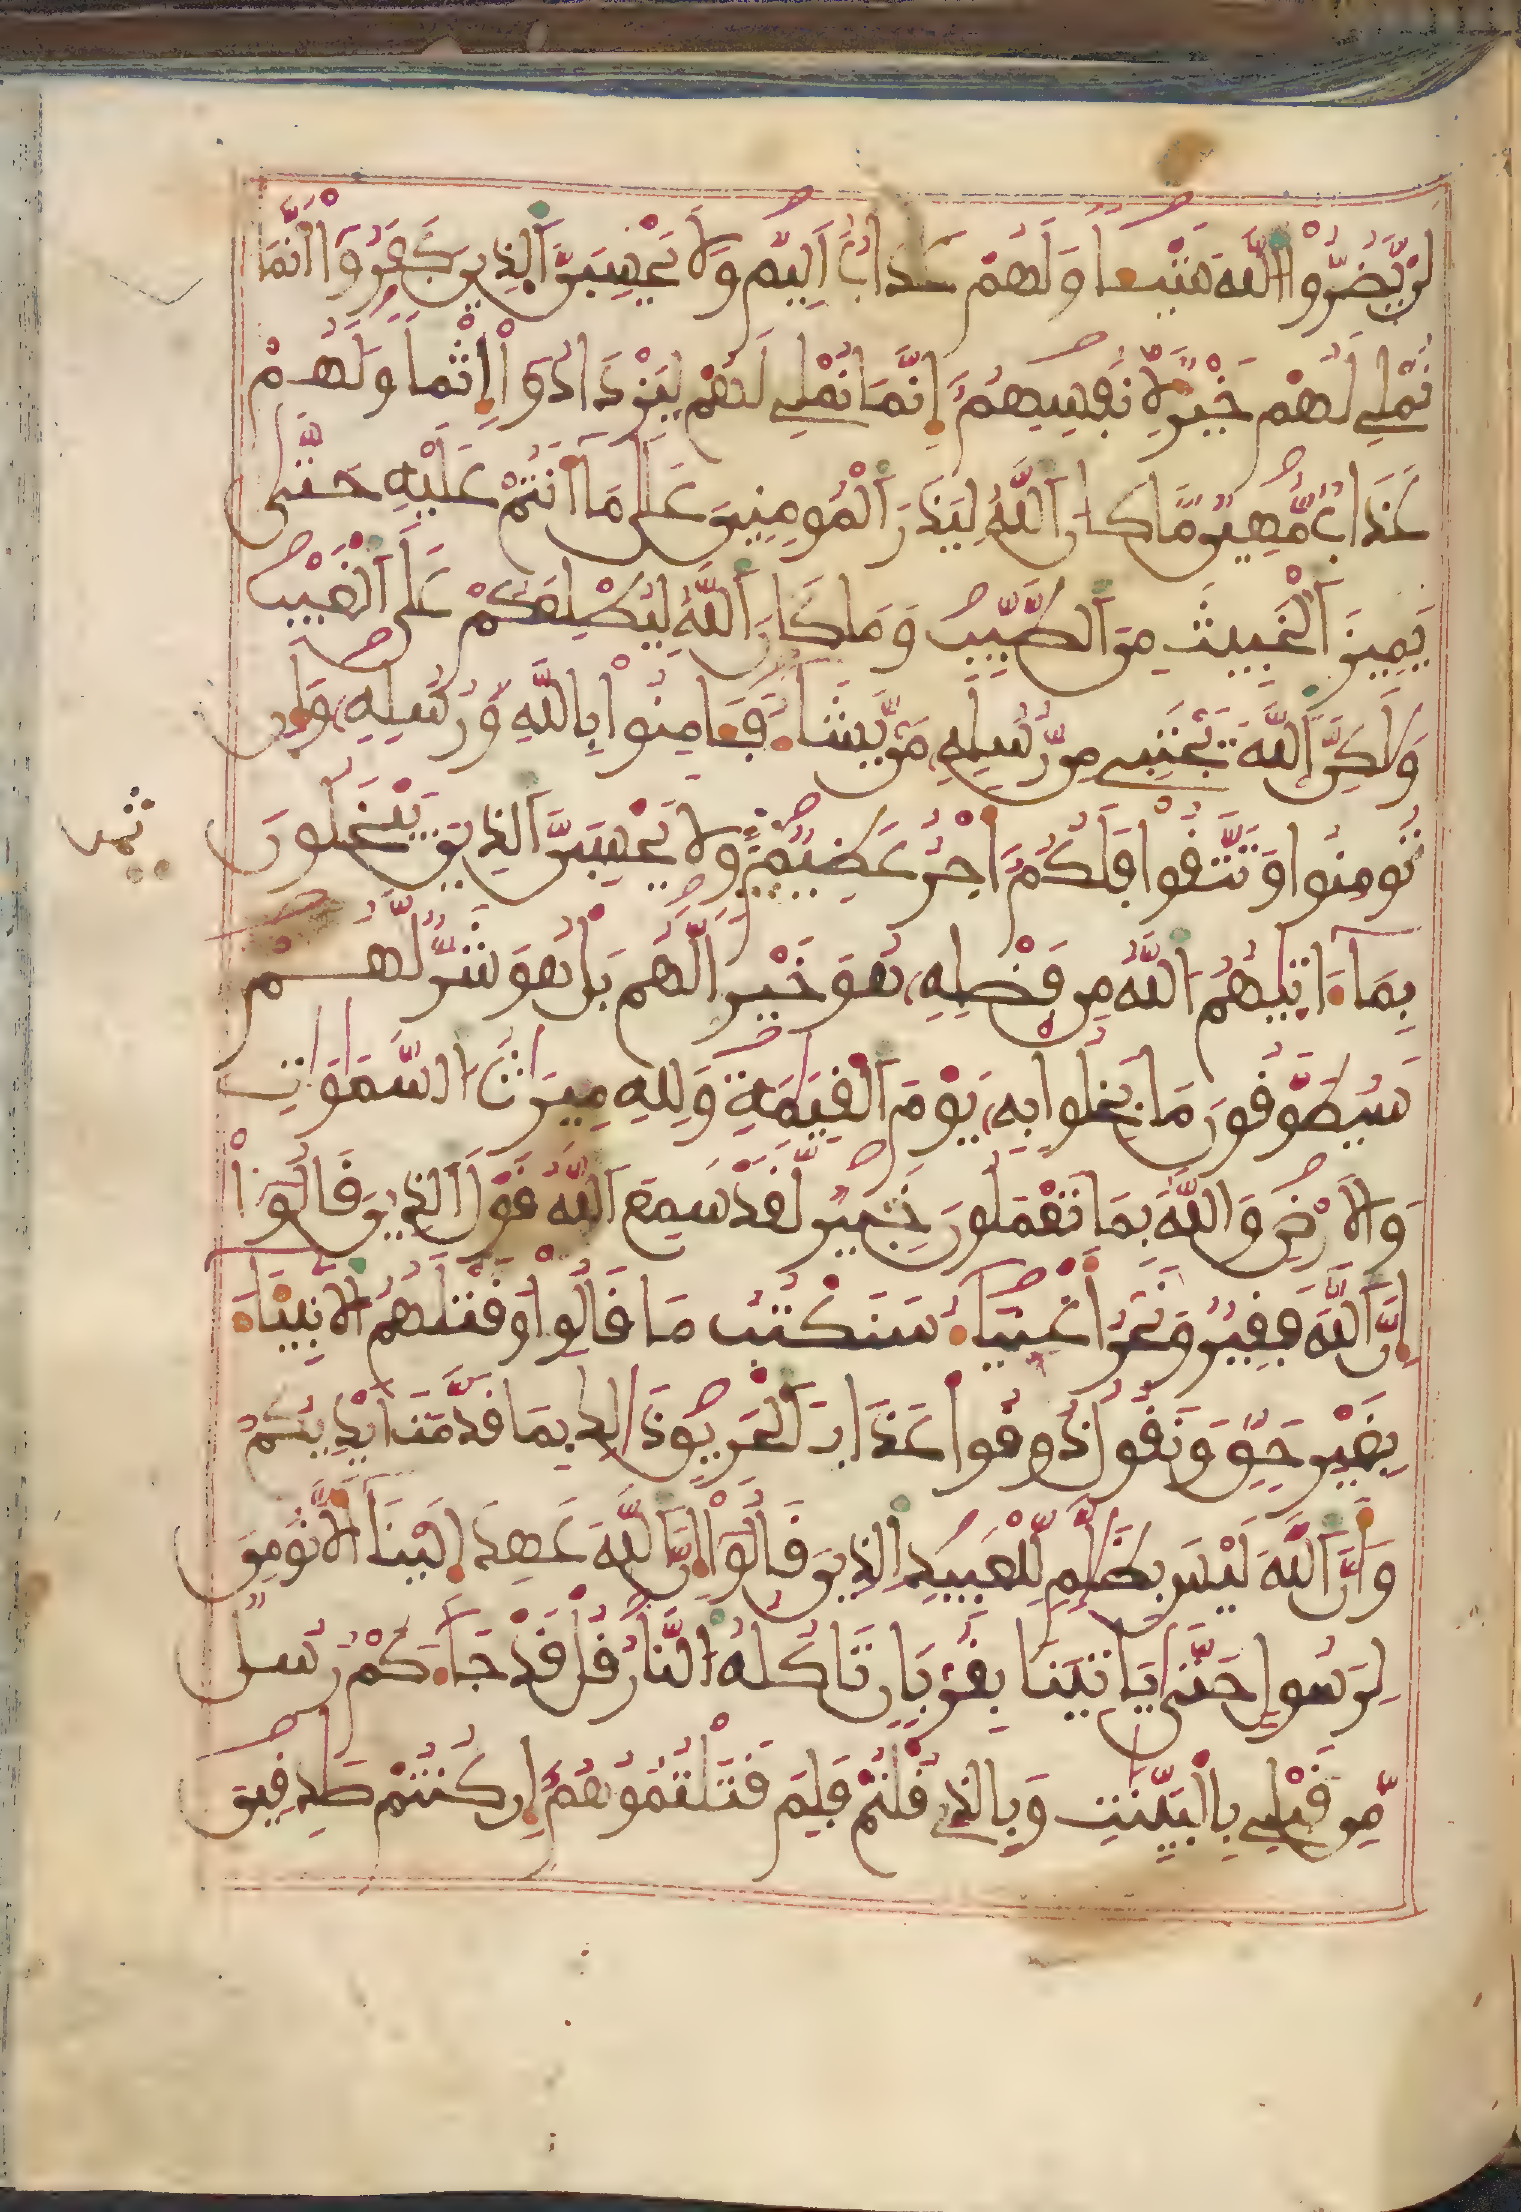 لَنْ يَّضُرُّوا۟ اللَّهَ شَيْـًٔا وَلَهُمْ عَذَابٌ اَلِيمٌ وَلَا يَحْسِبَنَّ اَ۬لذِينَ كَفَرُوٓا۟ أَنَّمَا
نُمْلِے لَهُمْ خَيْرٌ لِّأَنفُسِهِمُۥٓ إِنَّمَا نُمْلِے لَهُمْ لِيَزْدَادُوٓا۟ إِثْماً وَلَهُمْ
عَذَابٌ مُّهِينٌ مَّا كَانَ اَ۬للَّهُ لِيَذَرَ اَ۬لْمُومِنِينَ عَلَىٰ مَآ أَنتُمْ عَلَيْهِ حَتَّىٰ
يَمِيزَ اَ۬لْخَبِيثَ مِنَ اَ۬لطَّيِّبِ وَمَا كَانَ اَ۬للَّهُ لِيُطْلِعَكُمْ عَلَى اَ۬لْغَيْبِ
وَلَٰكِنَّ اَ۬للَّهَ يَجْتَبِے مِن رُّسُلِهِۦ مَنْ يَّشَآءُ فَـَٔامِنُوا۟ بِاللَّهِ وَرُسُلِهِۦ وَإِن
تُومِنُوا۟ وَتَتَّقُوا۟ فَلَكُمُۥٓ أَجْرٌ عَظِيمٌ وَلَا يَحْسِبَنَّ اَ۬لذِينَ يَبْخَلُونَ
ثمن
بِمَآ ءَاتَيٰهُمُ اُ۬للَّهُ مِن فَضْلِهِۦ هُوَ خَيْراً لَّهُم بَلْ هُوَ شَرٌّ لَّهُمْ
سَيُطَوَّقُونَ مَا بَخِلُوا۟ بِهِۦ يَوْمَ اَ۬لْقِيَٰمَةِ وَلِلهِ مِيرَٰثُ اُ۬لسَّمَٰوَٰتِ
وَالْأَرْضِ وَاللَّهُ بِمَا تَعْمَلُونَ خَبِيرٌ لَّقَدْ سَمِعَ اَ۬للَّهُ قَوْلَ اَ۬لذِينَ قَالُوٓا۟
إِنَّ اَ۬للَّهَ فَقِيرٌ وَنَحْنُ أَغْنِيَآءُ سَنَكْتُبُ مَا قَالُوا۟ وَقَتْلَهُمُ اُ۬لْأَنۢبِئَآءَ
بِغَيْرِ حَقٍّ وَنَقُولُ ذُوقُوا۟ عَذَابَ اَ۬لْحَرِيقِ ذَٰلِكَ بِمَا قَدَّمَتَ اَيْدِيكُمْ
وَأَنَّ اَ۬للَّهَ لَيْسَ بِظَلَّٰمٍ لِّلْعَبِيدِ اِ۬لذِينَ قَالُوٓا۟ إِنَّ اَ۬للَّهَ عَهِدَ إِلَيْنَآ أَلَّا نُومِنَ
لِرَسُولٍ حَتَّىٰ يَاتِيَنَا بِقُرْبَانٍ تَاكُلُهُ اُ۬لنَّارُ قُلْ قَدْ جَآءَكُمْ رُسُلٌ
مِّن قَبْلِے بِالْبَيِّنَٰتِ وَبِالذِے قُلْتُمْ فَلِمَ قَتَلْتُمُوهُمُۥٓ إِن كُنتُمْ صَٰدِقِينَ